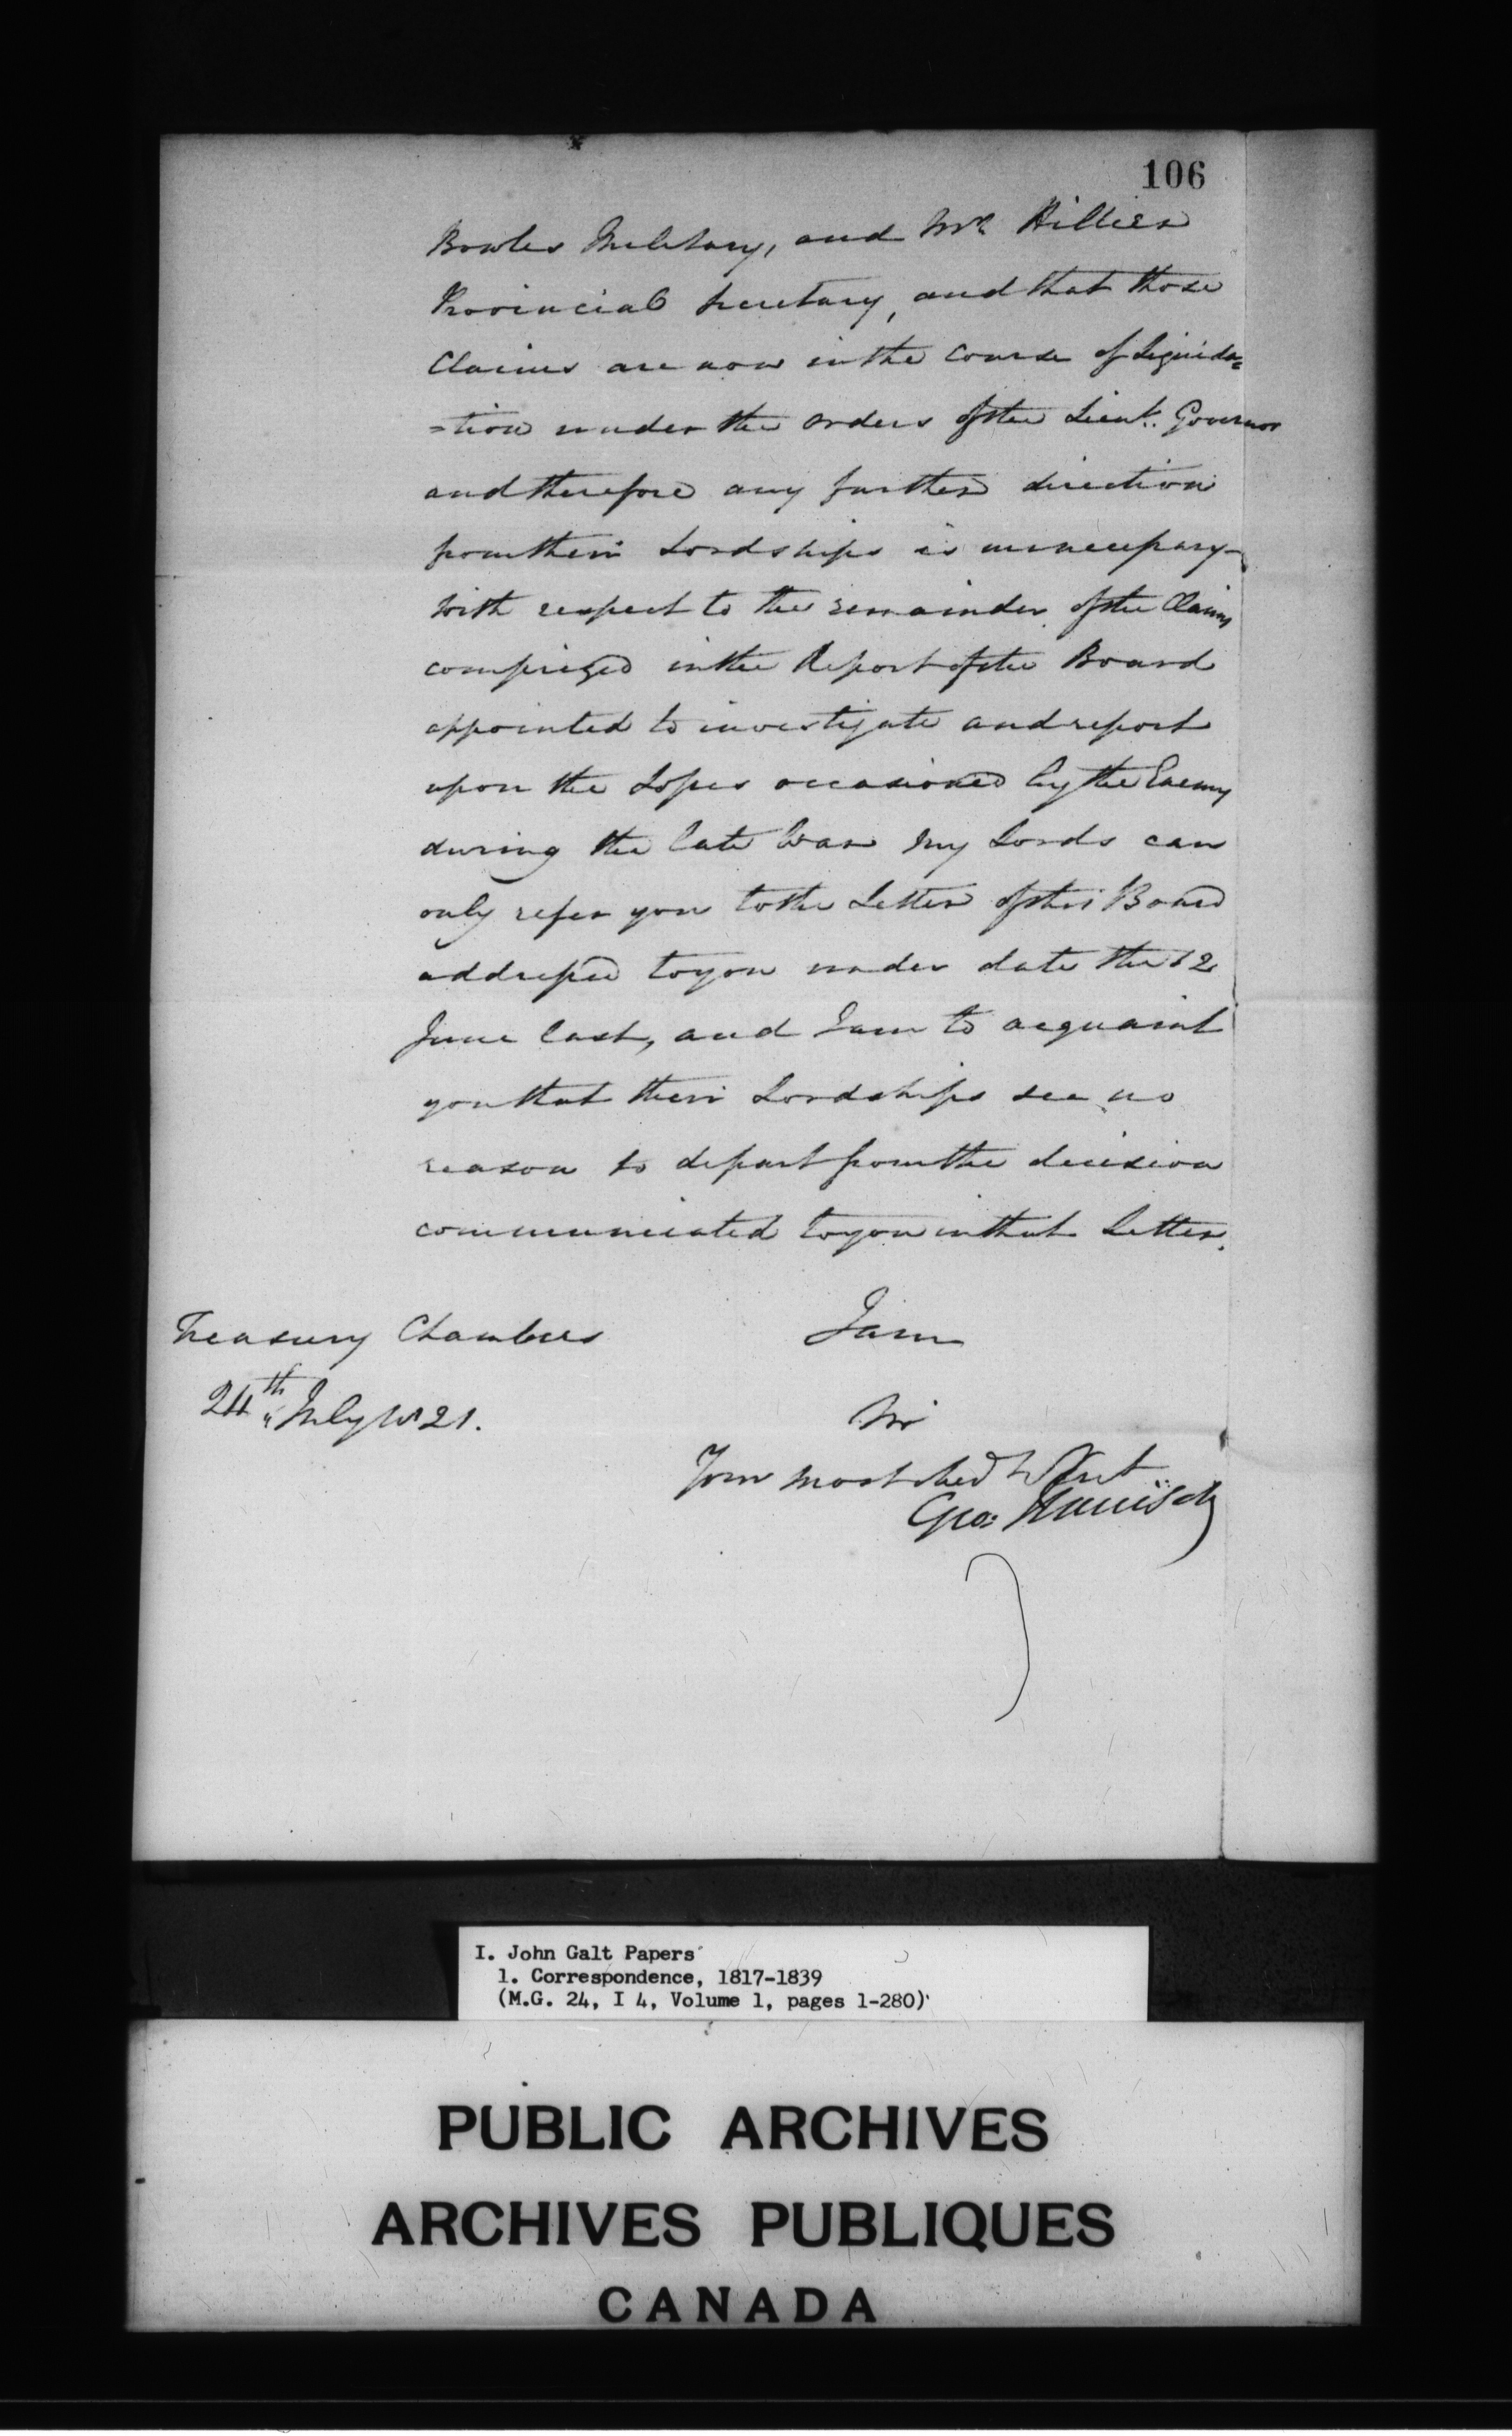 106
Bowles Military, and Mr. Hillier
Provincial Secretary, and that those
Claims are now in the Course of Liquida=
=tion under the orders of the Lieut. Governor
and therefore any further direction
from their Lordships is unnecessary–
With respect to the remainder of the Claims
comprized in the Report of the Board
appointed to investigate and report
upon the Losses occasioned by the Enemy
during the late War My Lords can
only refer you to the Letter of this Board
addressed to you under date the 12
June last, and I am to acquaint
you that their Lordships see no
reason to depart from the decision
communicated to you in that Letter.
I am
Treasury Chambers
24th July 1821.
Sir
Your most obed. Servt
Geo: Harrison
I. John Galt Papers
1. Correspondence, 1817-1839
(M.G. 24, I 4, Volume 1, pages 1-280)
PUBLIC ARCHIVES
ARCHIVES PUBLIQUES
CANADA